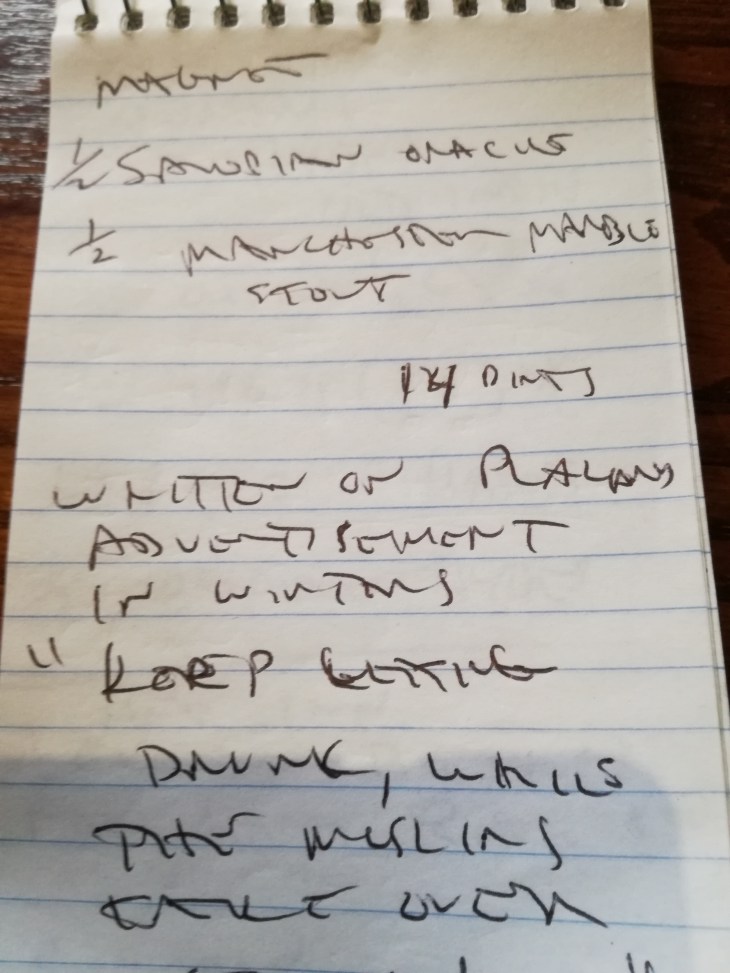 MAGNET
1/2 SALOPIAN ORACLE
1/2 MANCHESTER MARBLE
STOUT
14 PINTS
WRITTEN ON
ADVERTISEMENT
IN WINTONS
" KEEP GETTING
DRUNK, WHILE
THE MUSLIMS
TAKE OVER